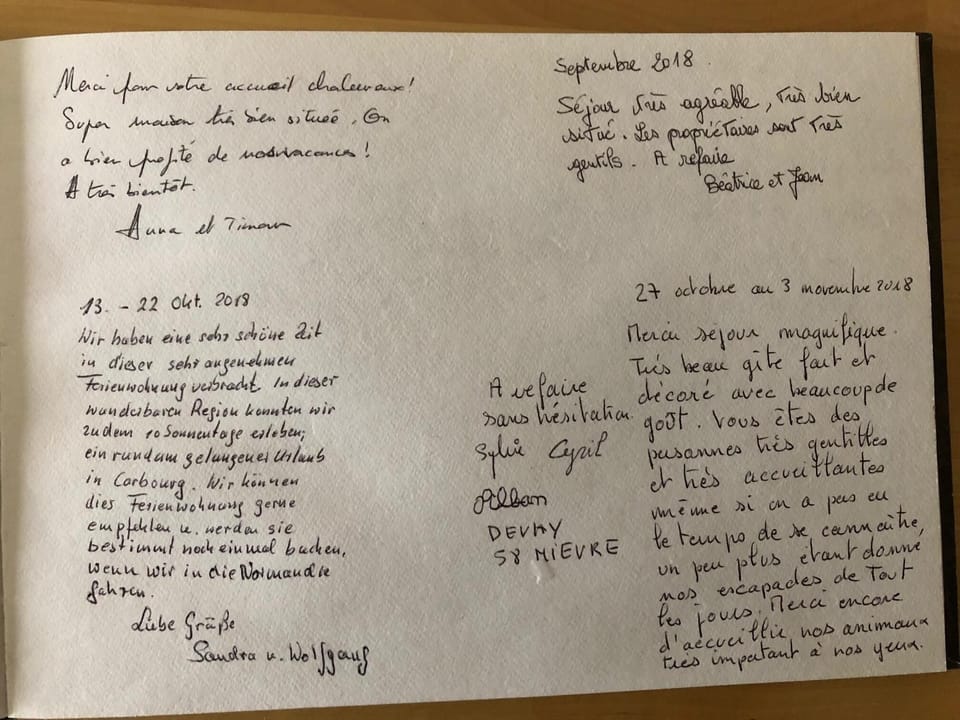 Merci pour votre accueil chaleureux!
Super maison très bien située. On
a bien profité de nos vacances!
A très bientôt.
Anna et
Septembre 2018
Séjour très agréable, très bien
situé. Les propriétaires sont très
gentils. A refaire
Béatrice et Jean
13. - 22 Okt. 2018
Wir haben eine sehr schöne Zeit
in dieser sehr angenehmen
Ferienwohnung verbracht. In dieser
wunderbaren Region konnten wir
zudem 10 Sonnentage erleben;
ein rundum gelungener Urlaub
in Carbourg. Wir können
dies Ferienwohnung gerne
empfehlen u. werden sie
bestimmt noch einmal buchen,
wenn wir in die Normandie
fahren.
Liebe Grüße
Sandra u. Wolfgang
27 octobre au 3 novembre 2018
Merci séjour magnifique.
Très beau gîte fait et
décoré avec beaucoup de
goût. Vous êtes des
personnes très gentilles
et très accueillantes
même si on a pas eu
le temps de se connaître,
un peu plus étant donné
nos escapades de tout
les jours. Merci encore
d'accueillir nos animaux
très important à nos yeux.
A refaire
sans hésitation.
Sylvie Cyril
Alban
DEVAY
58 NIEVRE